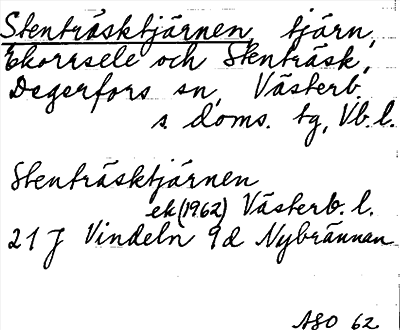 Stenträsktjärnen, tjärn,
Ekorrsele och Stenträsk,
Degerfors sn, Västerb.
s. doms. tg, Vb. l.
Stenträsktjärnen
ek (1962) Västerb. l.
21 J Vindeln 9d Nybrännan
ASO 62